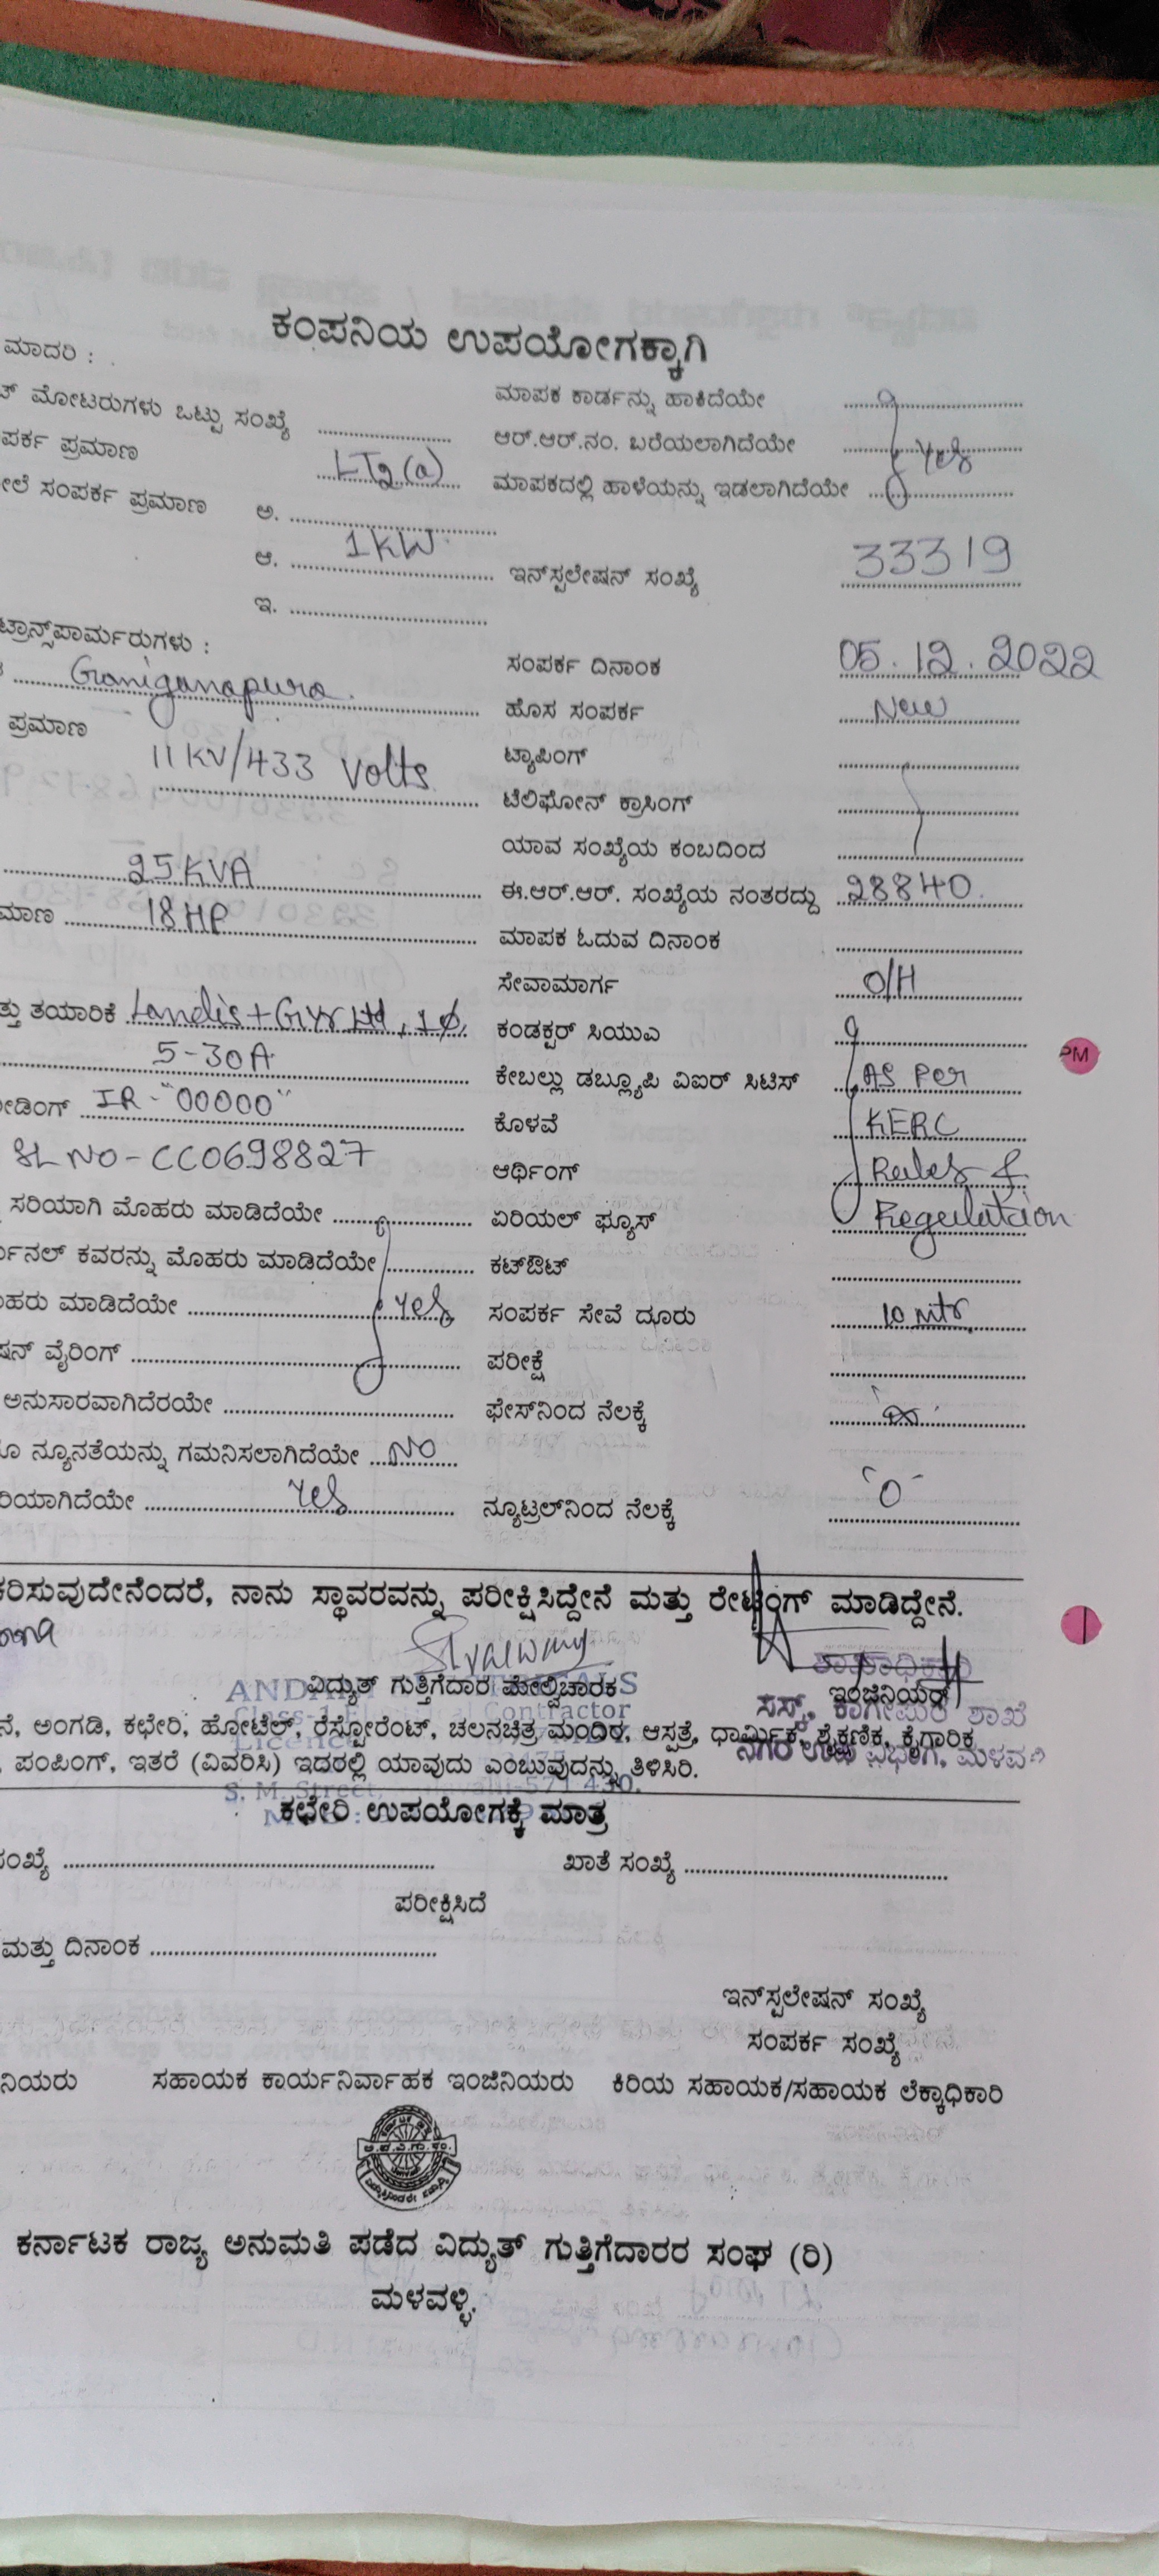 ಕಂಪನಿಯ ಉಪಯೋಗಕ್ಕಾಗಿ
ಮಾದರಿ :
ಮಾಪಕ ಕಾರ್ಡನ್ನು ಹಾಕಿದೆಯೇ
ಮೋಟರುಗಳು ಒಟ್ಟು ಸಂಖ್ಯೆ
ಆರ್.ಆರ್.ನಂ. ಬರೆಯಲಾಗಿದೆಯೇ Yes
ಪರ್ಕ ಪ್ರಮಾಣ LT2(a)
ಮಾಪಕದಲ್ಲಿ ಹಾಳೆಯನ್ನು ಇಡಲಾಗಿದೆಯೇ
ಲೆ ಸಂಪರ್ಕ ಪ್ರಮಾಣ ಅ.
ಆ. 1KW
ಇನ್‌ಸ್ಟಲೇಷನ್ ಸಂಖ್ಯೆ 33319
ಇ.
ಟ್ರಾನ್ಸ್‌ಪಾರ್ಮರುಗಳು :
ಸಂಪರ್ಕ ದಿನಾಂಕ 05.12.2022
Ganiganapura.
ಹೊಸ ಸಂಪರ್ಕ New
ಪ್ರಮಾಣ 11KV/433 Volts
ಟ್ಯಾಪಿಂಗ್
ಟೆಲಿಫೋನ್ ಕ್ರಾಸಿಂಗ್
ಯಾವ ಸಂಖ್ಯೆಯ ಕಂಬದಿಂದ
25KVA
ಈ.ಆರ್.ಆರ್. ಸಂಖ್ಯೆಯ ನಂತರದ್ದು 28840.
ಮಾಣ 18HP
ಮಾಪಕ ಓದುವ ದಿನಾಂಕ
ಸೇವಾಮಾರ್ಗ O/H
ತ್ತು ತಯಾರಿಕೆ Landis+Gyr Ltd, 1ϕ.
ಕಂಡಕ್ಟರ್ ಸಿಯುಎ
5-30A
ಕೇಬಲ್ಲು ಡಬ್ಲ್ಯೂಪಿ ವಿಐರ್ ಸಿಟಿಸ್ AS Per
ಡಿಂಗ್ IR - "00000"
ಕೊಳವೆ KERC
SL NO - CC0698827
ಆರ್ಥಿಂಗ್ Rules &
ಸರಿಯಾಗಿ ಮೊಹರು ಮಾಡಿದೆಯೇ
ಏರಿಯಲ್ ಫ್ಯೂಸ್ Regulation
ರ್ಮಿನಲ್ ಕವರನ್ನು ಮೊಹರು ಮಾಡಿದೆಯೇ
ಕಟ್‌ಔಟ್
ಹರು ಮಾಡಿದೆಯೇ Yes
ಸಂಪರ್ಕ ಸೇವೆ ದೂರು 10 Mtr
ಷನ್ ವೈರಿಂಗ್
ಪರೀಕ್ಷೆ
ಅನುಸಾರವಾಗಿದೆರಯೇ
ಫೇಸ್‌ನಿಂದ ನೆಲಕ್ಕೆ ∞
ನ್ಯೂನತೆಯನ್ನು ಗಮನಿಸಲಾಗಿದೆಯೇ NO
ರಿಯಾಗಿದೆಯೇ Yes
ನ್ಯೂಟ್ರಲ್‌ನಿಂದ ನೆಲಕ್ಕೆ "0"
ಕರಿಸುವುದೇನೆಂದರೆ, ನಾನು ಸ್ಥಾವರವನ್ನು ಪರೀಕ್ಷಿಸಿದ್ದೇನೆ ಮತ್ತು ರೇಟಿಂಗ್ ಮಾಡಿದ್ದೇನೆ.
ವಿದ್ಯುತ್ ಗುತ್ತಿಗೆದಾರ ಮೇಲ್ವಿಚಾರಕ
ಇಂಜಿನಿಯರ್
ನೆ, ಅಂಗಡಿ, ಕಛೇರಿ, ಹೋಟೆಲ್, ರೆಸ್ಟೋರೆಂಟ್, ಚಲನಚಿತ್ರ ಮಂದಿರ, ಆಸ್ಪತ್ರೆ, ಧಾರ್ಮಿಕ, ಶೈಕ್ಷಣಿಕ, ಕೈಗಾರಿಕ
ಪಂಪಿಂಗ್, ಇತರೆ (ವಿವರಿಸಿ) ಇದರಲ್ಲಿ ಯಾವುದು ಎಂಬುವುದನ್ನು ತಿಳಿಸಿರಿ.
S. M. Street,
ಕಛೇರಿ ಉಪಯೋಗಕ್ಕೆ ಮಾತ್ರ
ಸಂಖ್ಯೆ
ಖಾತೆ ಸಂಖ್ಯೆ
ಪರೀಕ್ಷಿಸಿದೆ
ಮತ್ತು ದಿನಾಂಕ
ಇನ್‌ಸ್ಟಲೇಷನ್ ಸಂಖ್ಯೆ
ಸಂಪರ್ಕ ಸಂಖ್ಯೆ
ನಿಯರು ಸಹಾಯಕ ಕಾರ್ಯನಿರ್ವಾಹಕ ಇಂಜಿನಿಯರು ಕಿರಿಯ ಸಹಾಯಕ/ಸಹಾಯಕ ಲೆಕ್ಕಾಧಿಕಾರಿ
ಕರ್ನಾಟಕ ರಾಜ್ಯ ಅನುಮತಿ ಪಡೆದ ವಿದ್ಯುತ್ ಗುತ್ತಿಗೆದಾರರ ಸಂಘ (ರಿ)
ಮಳವಳ್ಳಿ.
PM